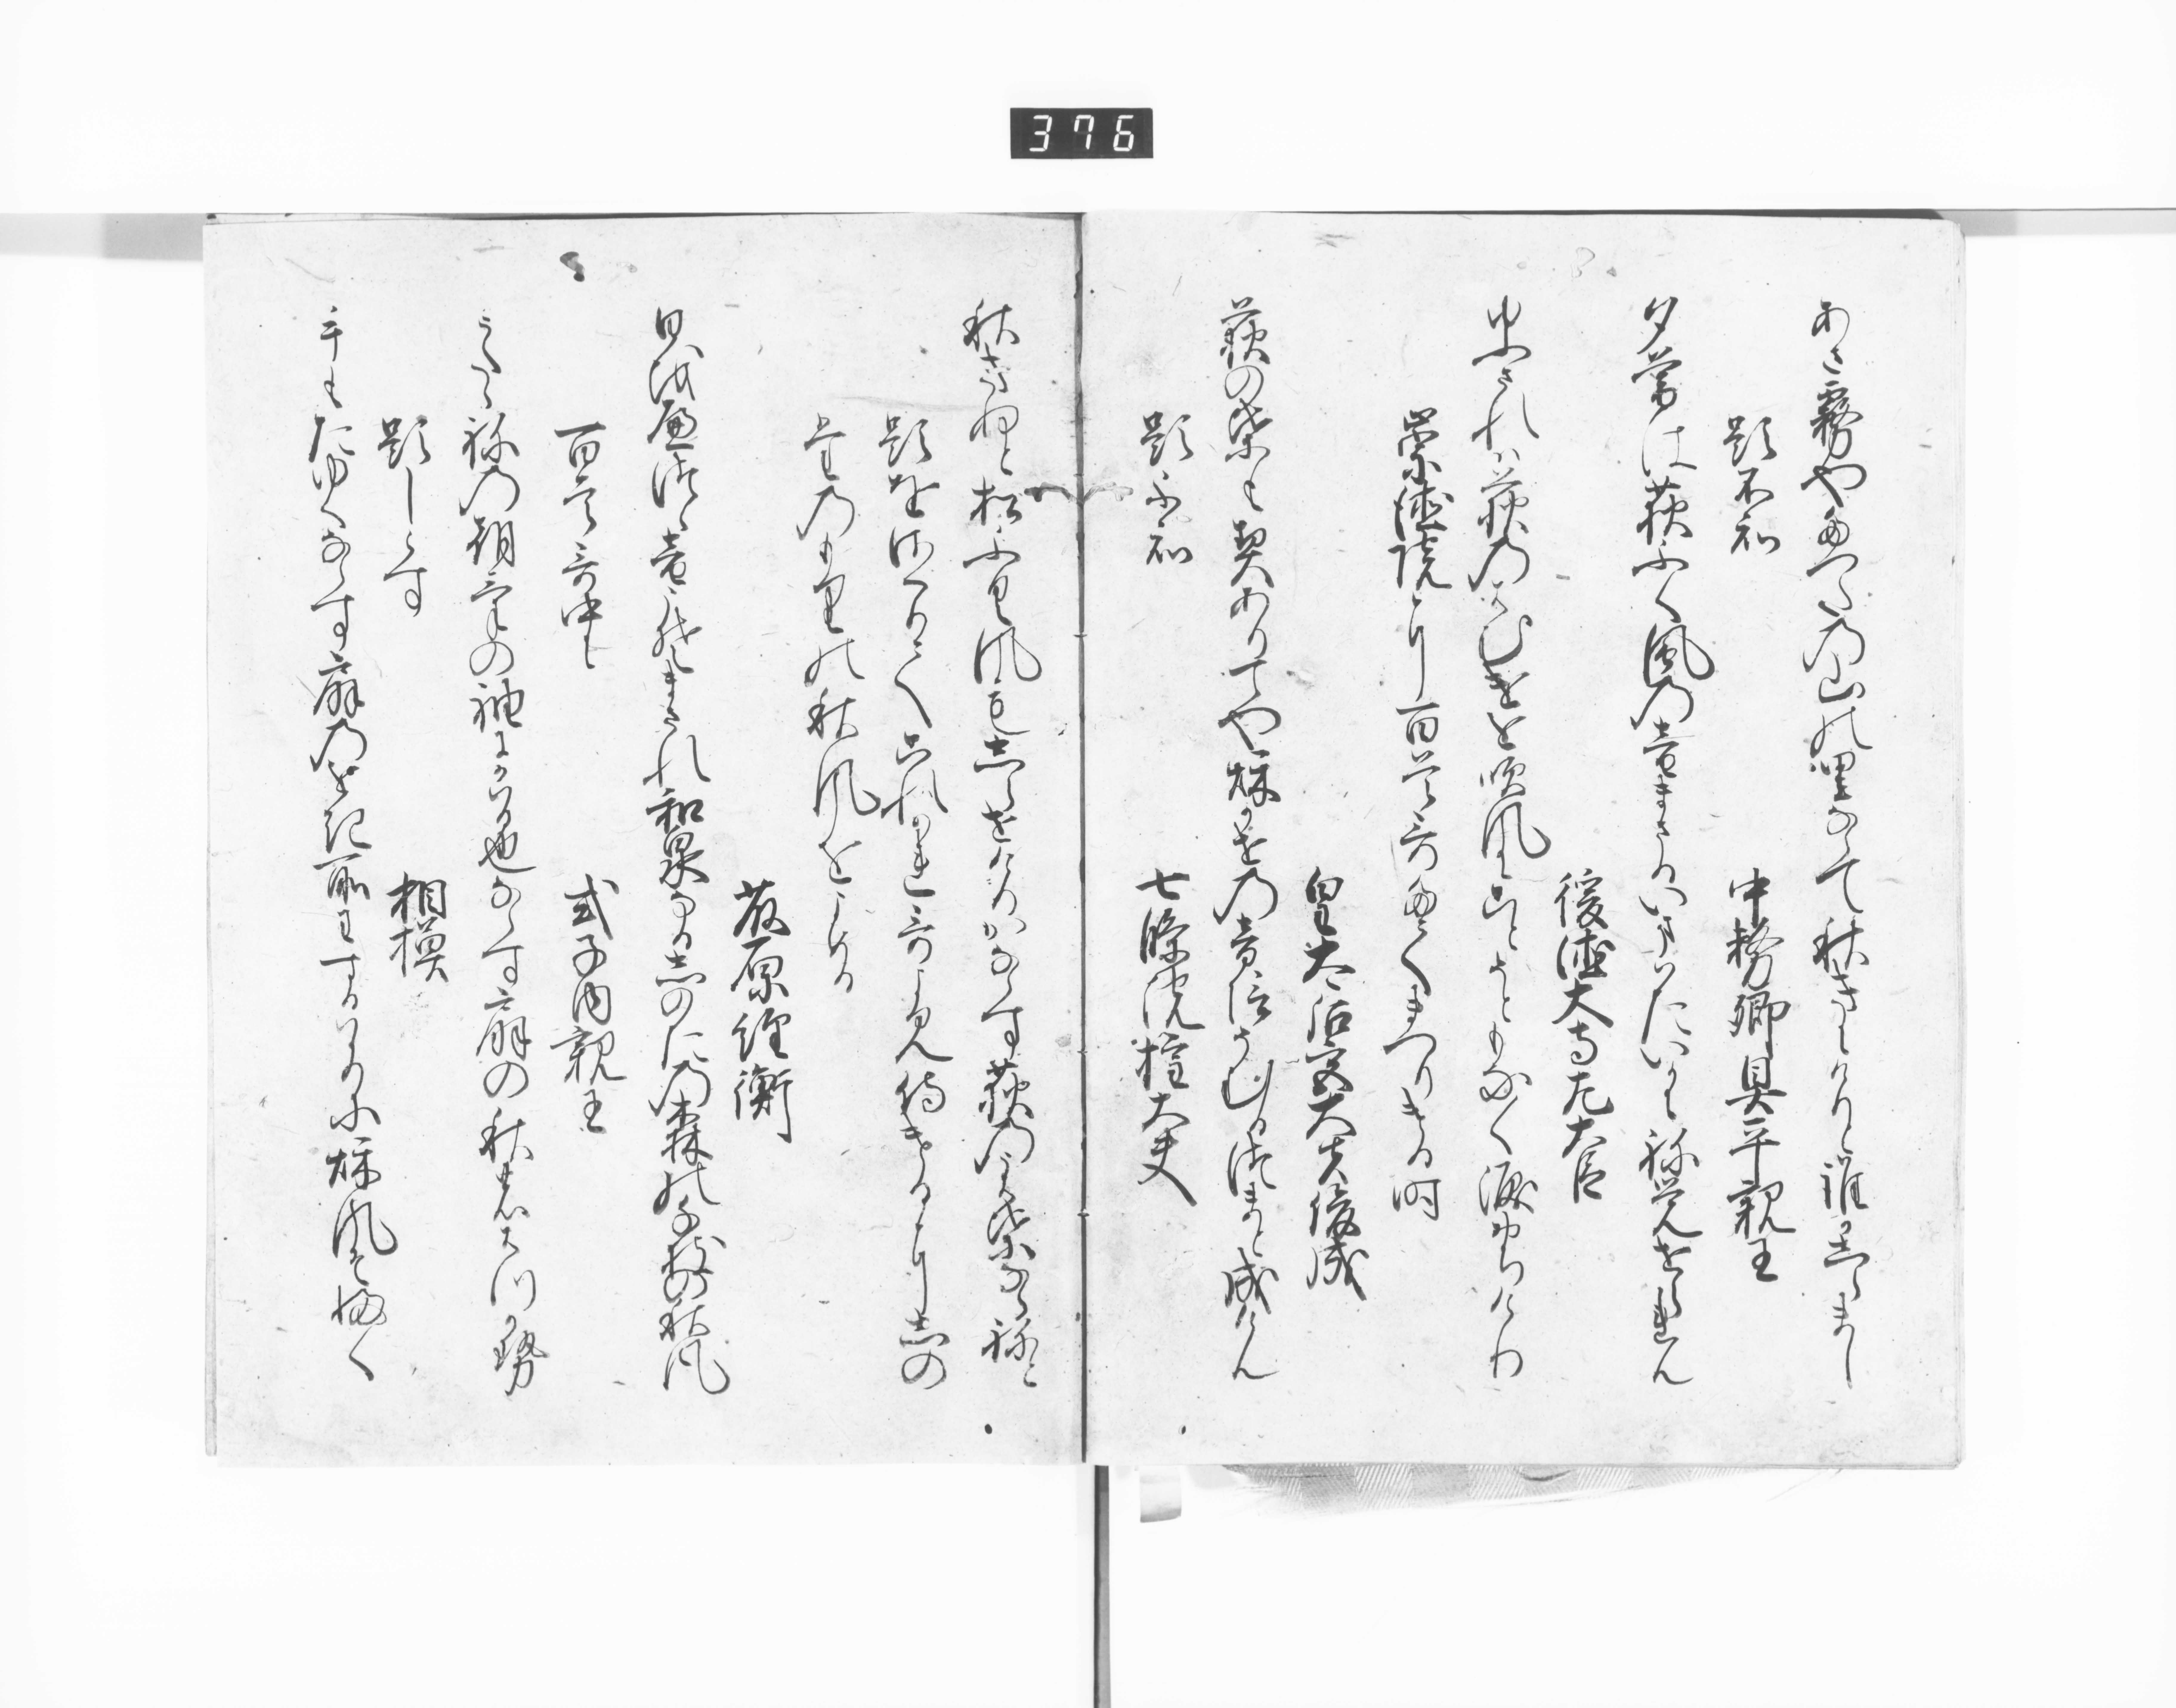 あさ霧やたつたの山の里ならて秋きにけりと誰かしらまし
題不知　中務卿具平親王
夕暮は荻ふく風の音まさるいまはたいかに祢覚せられん
後徳大寺左大臣
夕されは荻の葉むけを吹風にことそともなく涙おちけり
崇徳院に百首哥たてまつりける時
皇太后宮大夫俊成
荻の葉も契ありてや秋かせの音信そむるつまと成けん
題不知　七條院権大夫
秋きぬと松ふく風もしらせけりかならす荻のうは葉ならねと
題をさくりてこれかれ哥よみ侍けるにしの
たのもりの秋風をよめる
藤原経衡
日を経つゝ音こそまされ和泉なるしのたの森の千枝の秋風
百首哥中に　式子内親王
うたゝねの朝けの袖にかはる也ならす扇の秋のはつ風
題しらす　相模
手もたゆくならす扇のをき所わするはかりに秋風そふく
376